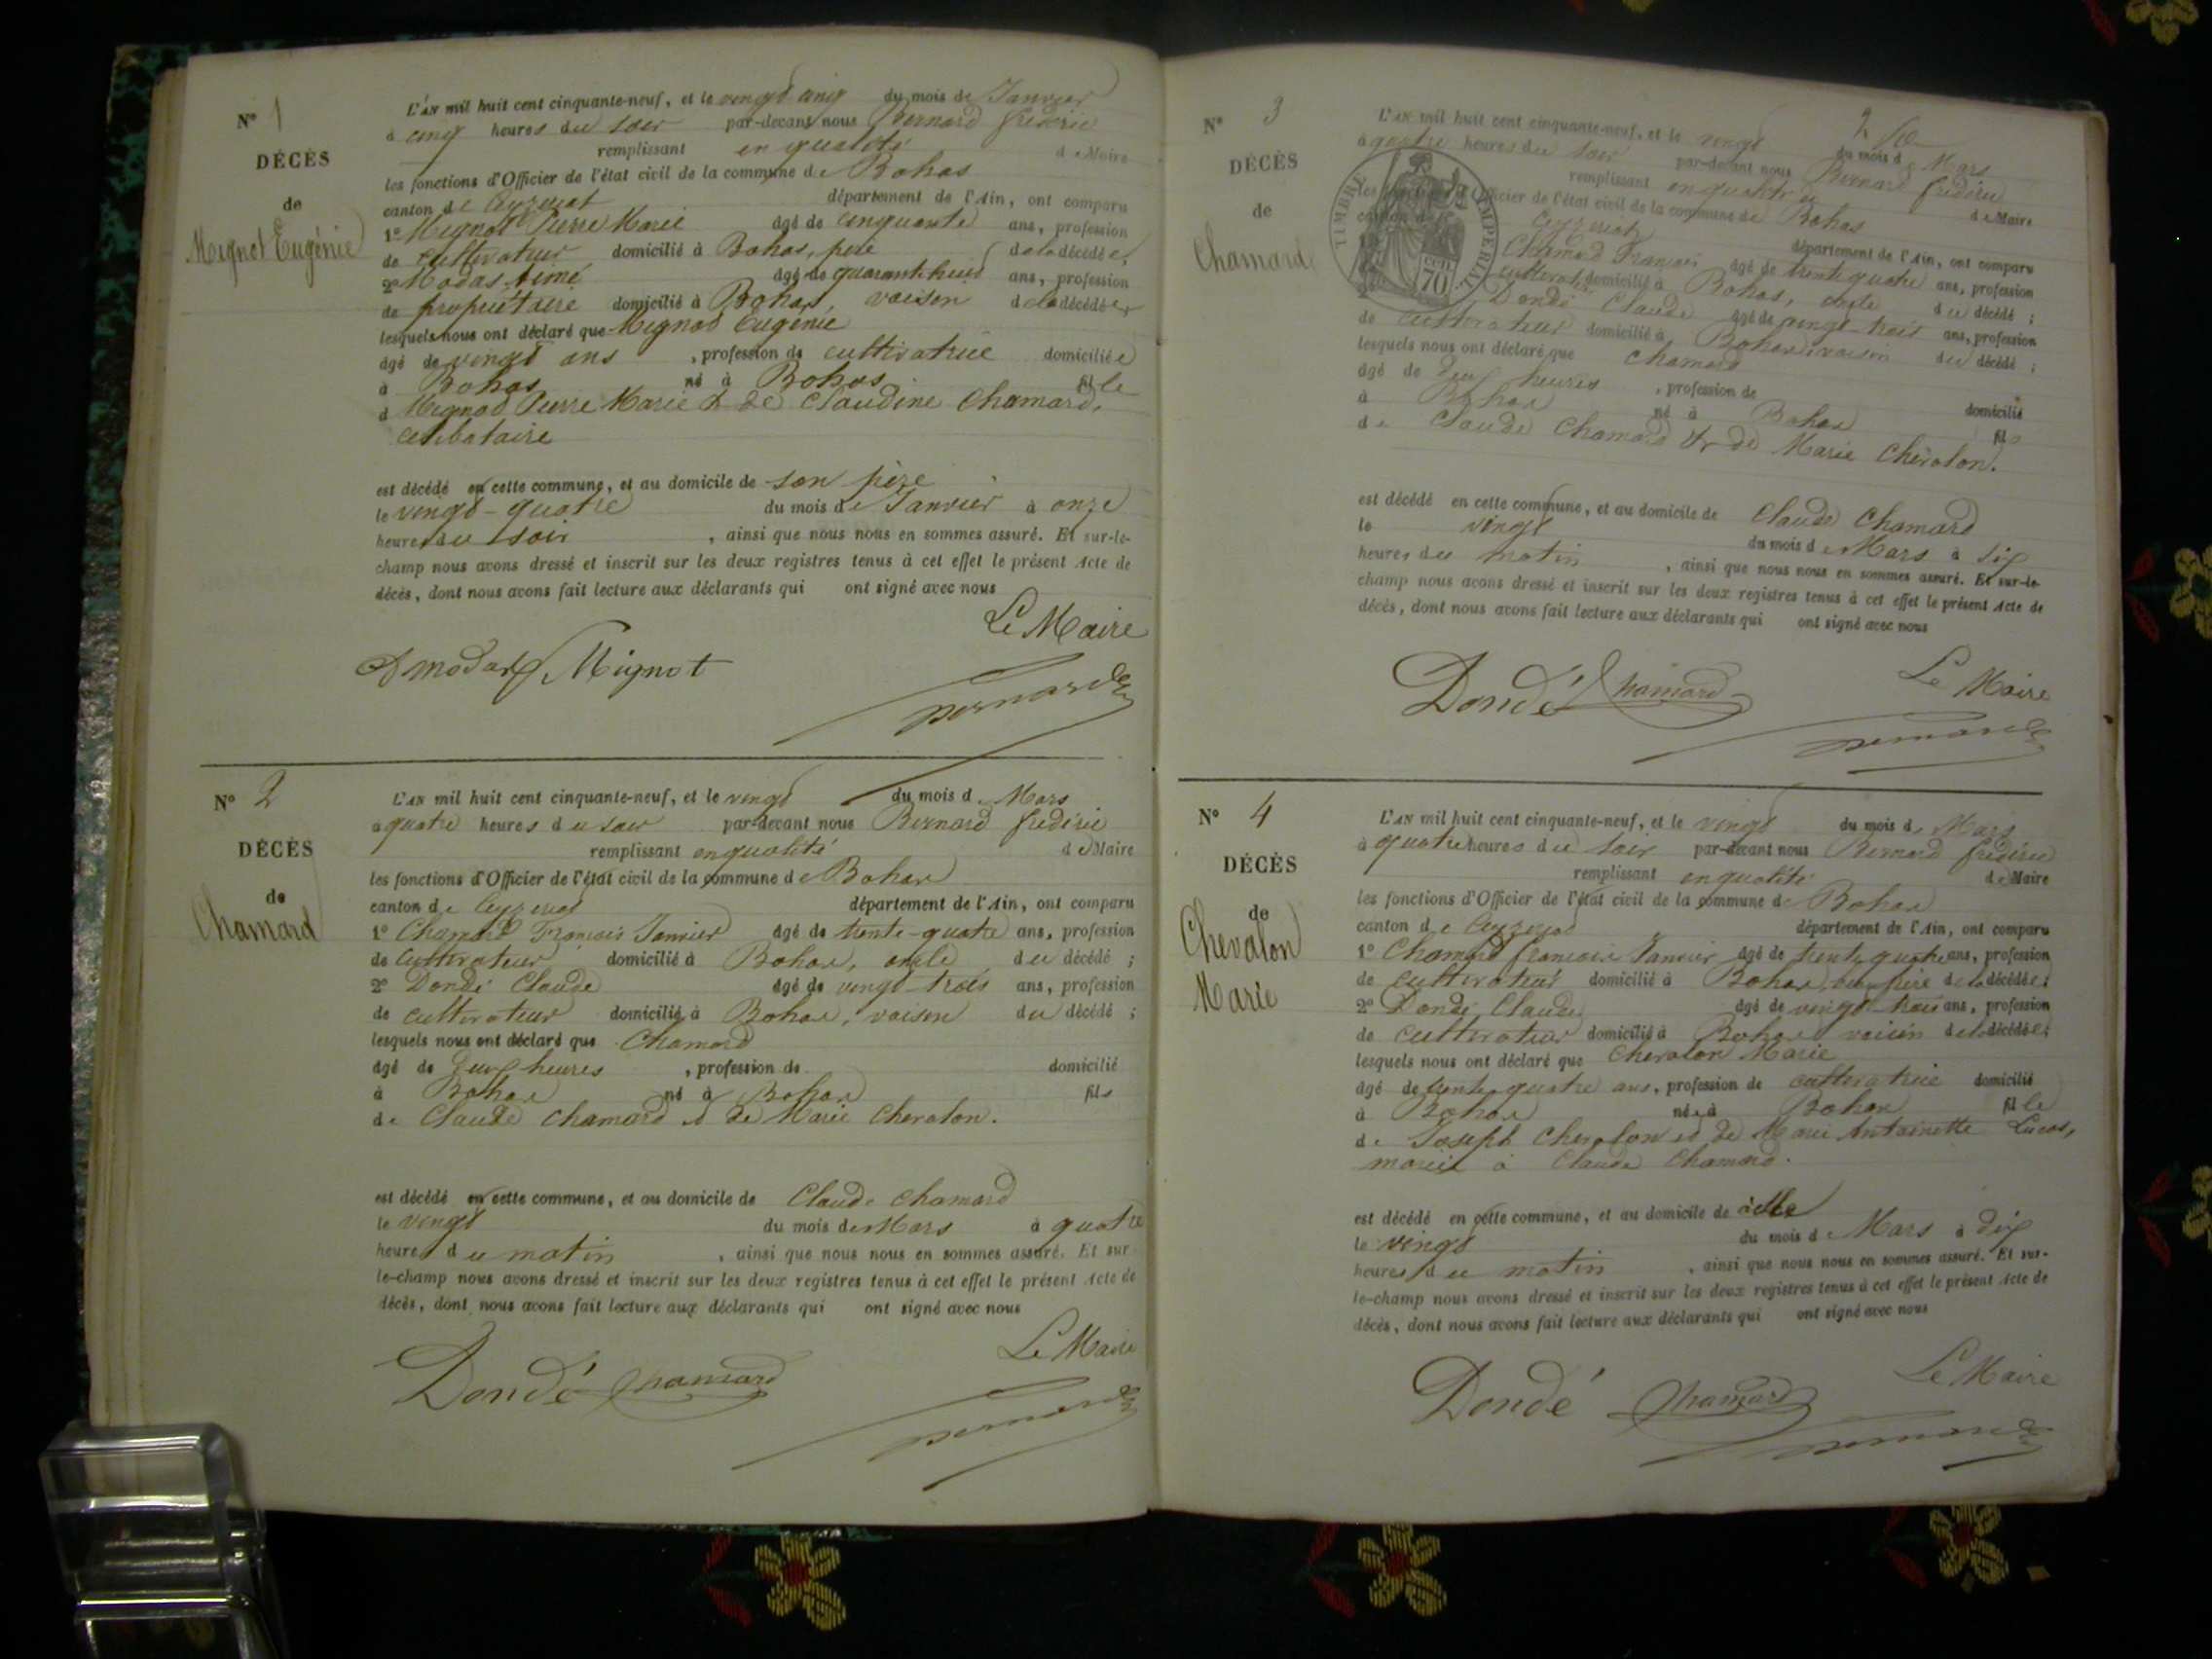 N° 1
DÉCÈS
de
Mignot Eugénie
L'AN mil huit cent cinquante-neuf, et le vingt cinq du mois de Janvier
à cinq heures du soir par-devant nous Bernard frédéric
remplissant en qualité de Maire
les fonctions d'Officier de l'état civil de la commune de Bohas
canton de Ceyzeriat département de l'Ain, ont comparu
1° Mignot Pierre Marie âgé de cinquante ans, profession
de cultivateur domicilié à Bohas, père de la décédée,
2° Modas Aimé âgé de quarante huit ans, profession
de propriétaire domicilié à Bohas, voisin de la décédée
lesquels nous ont déclaré que Mignot Eugénie
âgé de vingt ans, profession de cultivatrice domiciliée
à Bohas né à Bohas fille
d Mignot Pierre Marie & de Claudine Chamard,
célibataire
est décédé en cette commune, et au domicile de son père
le vingt-quatre du mois de Janvier à onze
heures du soir, ainsi que nous nous en sommes assuré. Et sur-le-
champ nous avons dressé et inscrit sur les deux registres tenus à cet effet le présent Acte de
décès, dont nous avons fait lecture aux déclarants qui ont signé avec nous
Le Maire
Amodas Mignot
Bernard
N° 2
DÉCÈS
de
Chamard
L'AN mil huit cent cinquante-neuf, et le vingt du mois de Mars
à quatre heures du soir par-devant nous Bernard frédéric
remplissant en qualité de Maire
les fonctions d'Officier de l'état civil de la commune de Bohas
canton de Ceyzeriat département de l'Ain, ont comparu
1° Chamard François Janvier âgé de trente-quatre ans, profession
de cultivateur domicilié à Bohas, oncle du décédé ;
2° Dondé Claude âgé de vingt-trois ans, profession
de cultivateur domicilié à Bohas, voisin du décédé ;
lesquels nous ont déclaré que Chamard
âgé de deux heures, profession de domicilié
à Bohas né à Bohas fils
de Claude Chamard et de Marie Chevalon.
est décédé en cette commune, et au domicile de Claude Chamard
le vingt du mois de Mars à quatre
heures du matin, ainsi que nous nous en sommes assuré. Et sur
le-champ nous avons dressé et inscrit sur les deux registres tenus à cet effet le présent Acte de
décès, dont nous avons fait lecture aux déclarants qui ont signé avec nous
Le Maire
Dondé Chamard
Bernard
N° 3
DÉCÈS
de
Chamard
TIMBRE IMPERIAL
70
L'AN mil huit cent cinquante-neuf, et le vingt du mois de Mars
à quatre heures du soir par-devant nous Bernard frédéric
remplissant en qualité de Maire
les fonctions d'Officier de l'état civil de la commune de Bohas
canton de Ceyzeriat département de l'Ain, ont comparu
Chamard François âgé de trente quatre ans, profession
cultivateur domicilié à Bohas, oncle du décédé ;
2° Dondé Claude âgé de vingt-trois ans, profession
de cultivateur domicilié à Bohas voisin du décédé ;
lesquels nous ont déclaré que Chamard
âgé de deux heures, profession de
à Bohas né à Bohas domicilié
de Claude Chamard & de Marie Chevalon. fils
est décédé en cette commune, et au domicile de Claude Chamard
le vingt du mois de Mars à six
heures du matin, ainsi que nous nous en sommes assuré. Et sur-le-
champ nous avons dressé et inscrit sur les deux registres tenus à cet effet le présent Acte de
décès, dont nous avons fait lecture aux déclarants qui ont signé avec nous
Le Maire
Dondé Chamard
Bernard
N° 4
DÉCÈS
de
Chevalon
Marie
L'AN mil huit cent cinquante-neuf, et le vingt du mois de Mars
à quatre heures du soir par-devant nous Bernard frédéric
remplissant en qualité de Maire
les fonctions d'Officier de l'état civil de la commune de Bohas
canton de Ceyzeriat département de l'Ain, ont comparu
1° Chamard françois Janvier âgé de trente quatre ans, profession
de cultivateur domicilié à Bohas, beau père de la décédée ;
2° Dondé Claude âgé de vingt-trois ans, profession
de cultivateur domicilié à Bohas voisin de la décédée ;
lesquels nous ont déclaré que Chevalon Marie
âgé de trente quatre ans, profession de cultivatrice domicilié
à Bohas née à Bohas fille
de Joseph Chevalon et de Marie Antoinette Lucas,
mariée à Claude Chamard.
est décédé en cette commune, et au domicile de
le vingt du mois de Mars à dix
heures du matin, ainsi que nous nous en sommes assuré. Et sur-
le-champ nous avons dressé et inscrit sur les deux registres tenus à cet effet le présent Acte de
décès, dont nous avons fait lecture aux déclarants qui ont signé avec nous
Le Maire
Dondé Chamard
Bernard